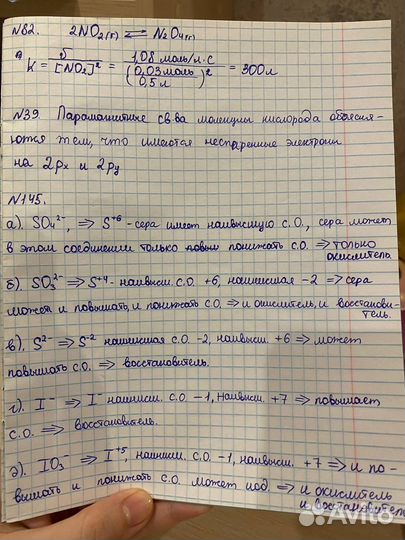 N82. 2NO₂(г) ⇄ N₂O₄(г)
k = υ / [NO₂]² = 1,08 моль/л·с / (0,03 моль / 0,5 л)² = 300 л
N39. Парамагнитные св-ва молекулы кислорода объясня-
ются тем, что имеются неспаренные электроны
на 2px и 2py
N145.
а). SO₄²⁻, ⇒ S⁺⁶ - сера имеет наивысшую с.О., сера может
в этом соединении только понижать с.О ⇒ только
окислитель.
б). SO₃²⁻ ⇒ S⁺⁴ - наивысш. с.О. +6, наинисшая -2 ⇒ сера
может и повышать, и понижать с.О. ⇒ и окислитель, и восстанови-
тель.
в). S²⁻ ⇒ S⁻² наинисшая с.О. -2, наивысш. +6 ⇒ может
повышать с.О. ⇒ восстановитель.
г). I⁻ ⇒ I⁻ наинисш. с.О. -1, наивысш. +7 ⇒ повышает
с.О. ⇒ восстановитель.
д). IO₃⁻ ⇒ I⁺⁵, наинисш. с.О. -1, наивысш. +7 ⇒ и по-
вышать и понижать с.О. может иод. ⇒ и окислитель
и восстановитель
Avito